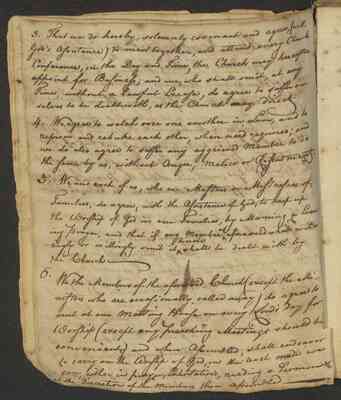 3. That we do hereby, solemnly covenant and agree (with
God's Assistance) to meet together, and attend every Church
Conference, or the Day and Time, this Church may hereafter
appoint for Business; and any who shall omit, at any
Time, without a lawful Excuse, do agree to suffer our
selves to be dealt with, as the Church may direct.
4. We agree to watch over one another in Love, and to
reprove and rebuke each other, when need requires; and
we do also agree to suffer any aggrieved Member to do
the same by us, without Anger, Malice or
5. We and each of us, who are Masters or Mistresses of
Families, do agree, with the Assistance of God, to keep up
the Worship of God in our Families, by Morning & Even
ing Prayer, and that if any Member aforesaid shall
or willingly omit it, shall be dealt with by
the Church
6. We the Members of the aforesaid Church (except the Mi-
nisters who are occasionally called away) do agree to
meet at our Meeting House on every Lords Day for
Worship (except any Preaching Meetings should be
convenient) and when Assembled, shall endeavor
to carry on the Worship of God, in the each made
either in prayer, Exhortation, reading a Sermon
at the Direction of the members then assembled